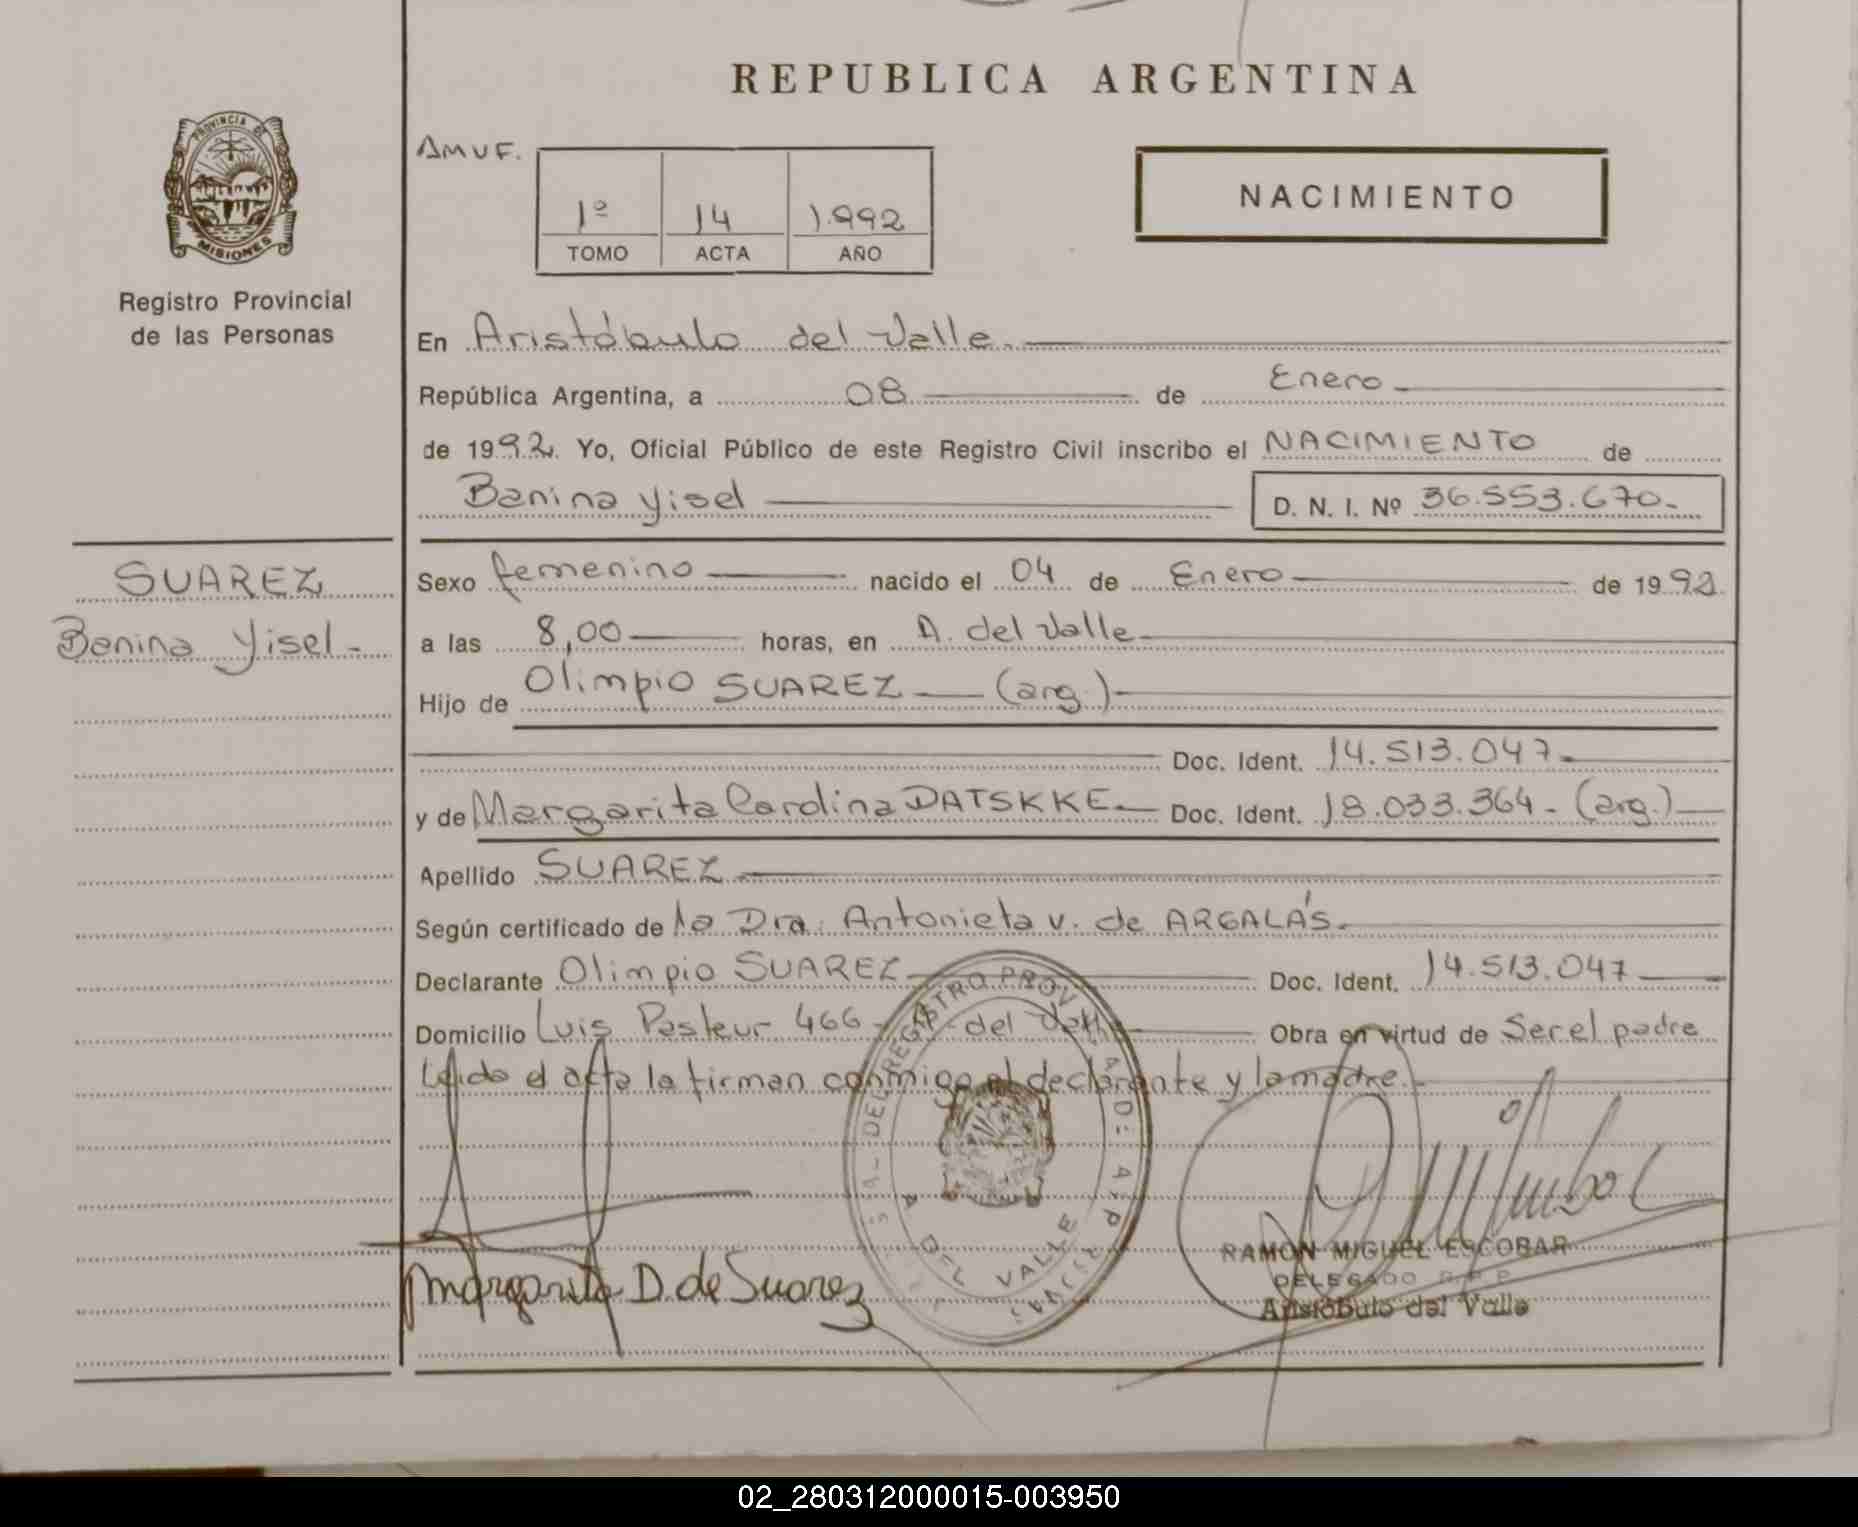 REPUBLICA ARGENTINA
PROVINCIA DE MISIONES
Registro Provincial
de las Personas
AMVF.
1º 14 1.992
TOMO ACTA AÑO
NACIMIENTO
En Aristóbulo del Valle.
República Argentina, a 08 de Enero
de 1992. Yo, Oficial Público de este Registro Civil inscribo el NACIMIENTO de
Banina Yisel D. N. I. Nº 36.553.670.-
SUAREZ
Banina Yisel-
Sexo femenino nacido el 04 de Enero de 1992
a las 8,00 horas, en A. del Valle
Hijo de Olimpio SUAREZ (arg.)
Doc. Ident. 14.513.047
y de Margarita Carolina DATSKKE. Doc. Ident. 18.033.364- (arg.)
Apellido SUAREZ
Según certificado de la Dra. Antonieta V. de ARGALÁS.
Declarante Olimpio SUAREZ Doc. Ident. 14.513.047
Domicilio Luis Pasteur 466- A. del Valle Obra en virtud de Ser el padre
Leida el acta la firman conmigo el declarante y la madre.
REGISTRO PROV.
A DEL VALLE
Margarita D. de Suarez
RAMON MIGUEL ESCOBAR
DELEGADO R.P.P.
Aristóbulo del Valle
02_280312000015-003950